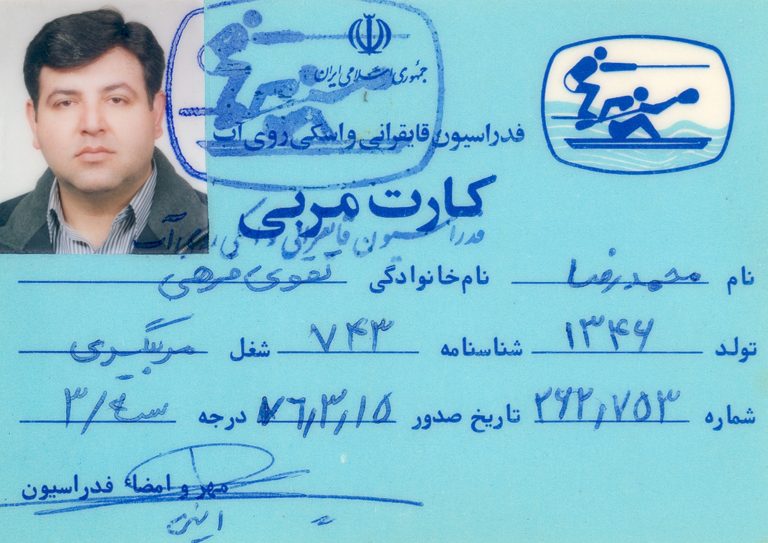 جمهوری اسلامی ایران
فدراسیون قایقرانی و اسکی روی آب
کارت مربی
فدراسیون قایقرانی و اسکی روی آب
نام محمدرضا نام خانوادگی تقوی فرهی
تولد ۱۳۴۶ شناسنامه ۷۴۳ شغل مربیگری
شماره ۲۶۲,۷۵۳ تاریخ صدور ۷۶,۳,۱۵ درجه ۳/
مهر و امضاء فدراسیون